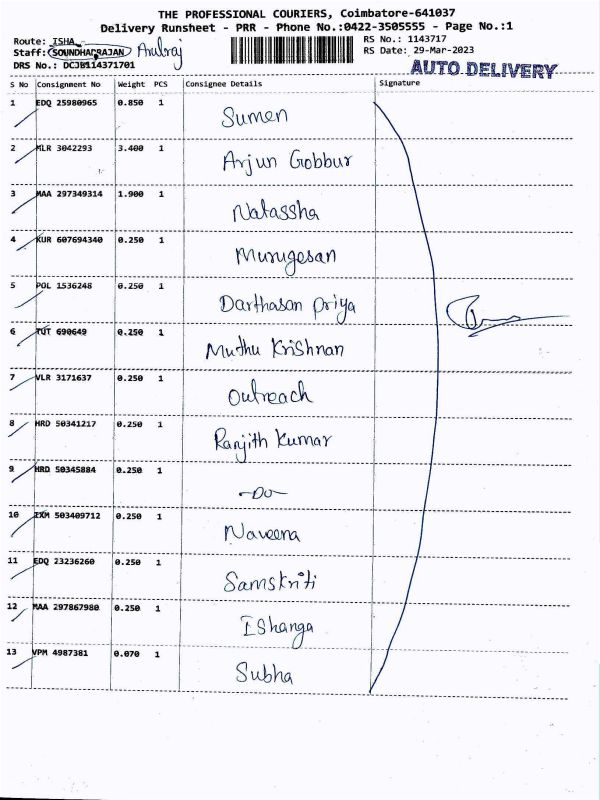 THE PROFESSIONAL COURIERS, Coimbatore-641037
Delivery Runsheet - PRR - Phone No.:0422-3505555 - Page No.:1
Route: ISHA
RS No.: 1143717
Staff: SOUNDHARRAJAN
RS Date: 29-Mar-2023
DRS No.: DCJB114371701
AUTO DELIVERY
S No Consignment No Weight PCS Consignee Details Signature
1 EDQ 25980965 0.850 1 Sumen
2 MLR 3042293 3.400 1 Arjun Gobbur
3 MAA 297349314 1.900 1 Natassha
4 KUR 607694340 0.250 1 Murugesan
5 POL 1536248 0.250 1 Darthasan priya
6 TUT 690649 0.250 1 Muthu Krishnan
7 VLR 3171637 0.250 1 Outreach
8 HRD 50341217 0.250 1 Ranjith Kumar
9 HRD 50345884 0.250 1 -DO-
10 IXM 503409712 0.250 1 Naveena
11 EDQ 23236260 0.250 1 Samskriti
12 MAA 297867980 0.250 1 Ishanga
13 VPM 4987381 0.070 1 Subha